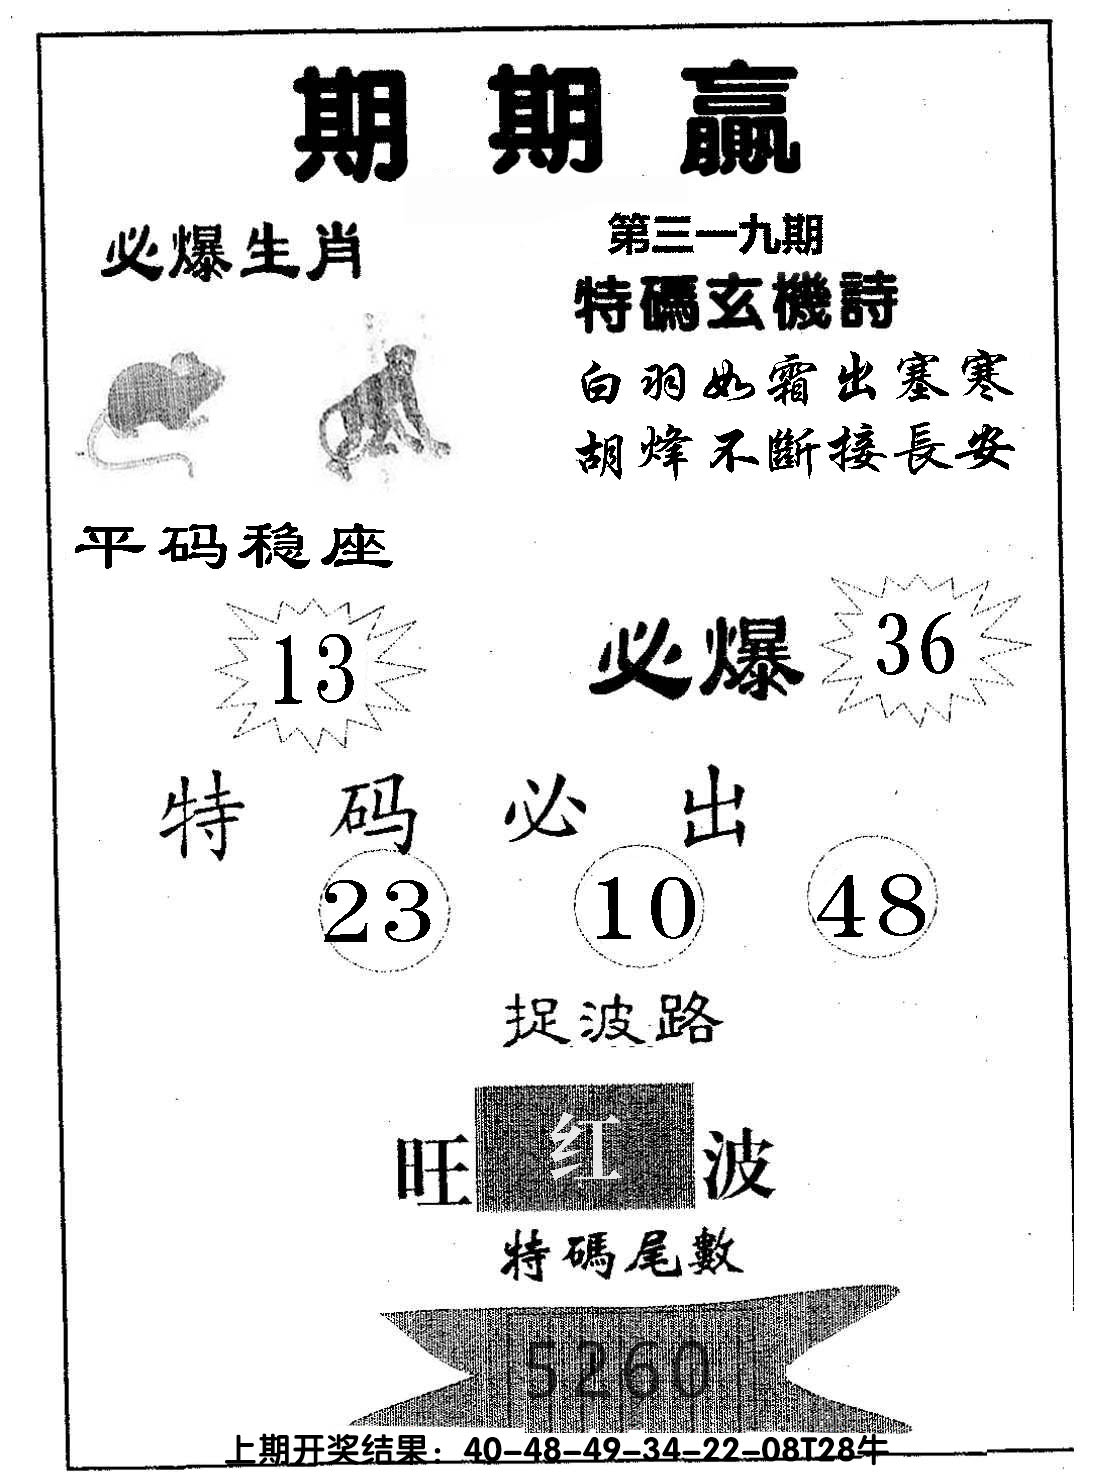 期期赢
必爆生肖
第三一九期
特碼玄機詩
白羽如霜出塞寒
胡烽不斷接長安
平码稳座
13
必爆 36
特码必出
23 10 48
捉波路
旺红波
特碼尾數
5260
上期开奖结果：40-48-49-34-22-08T28牛